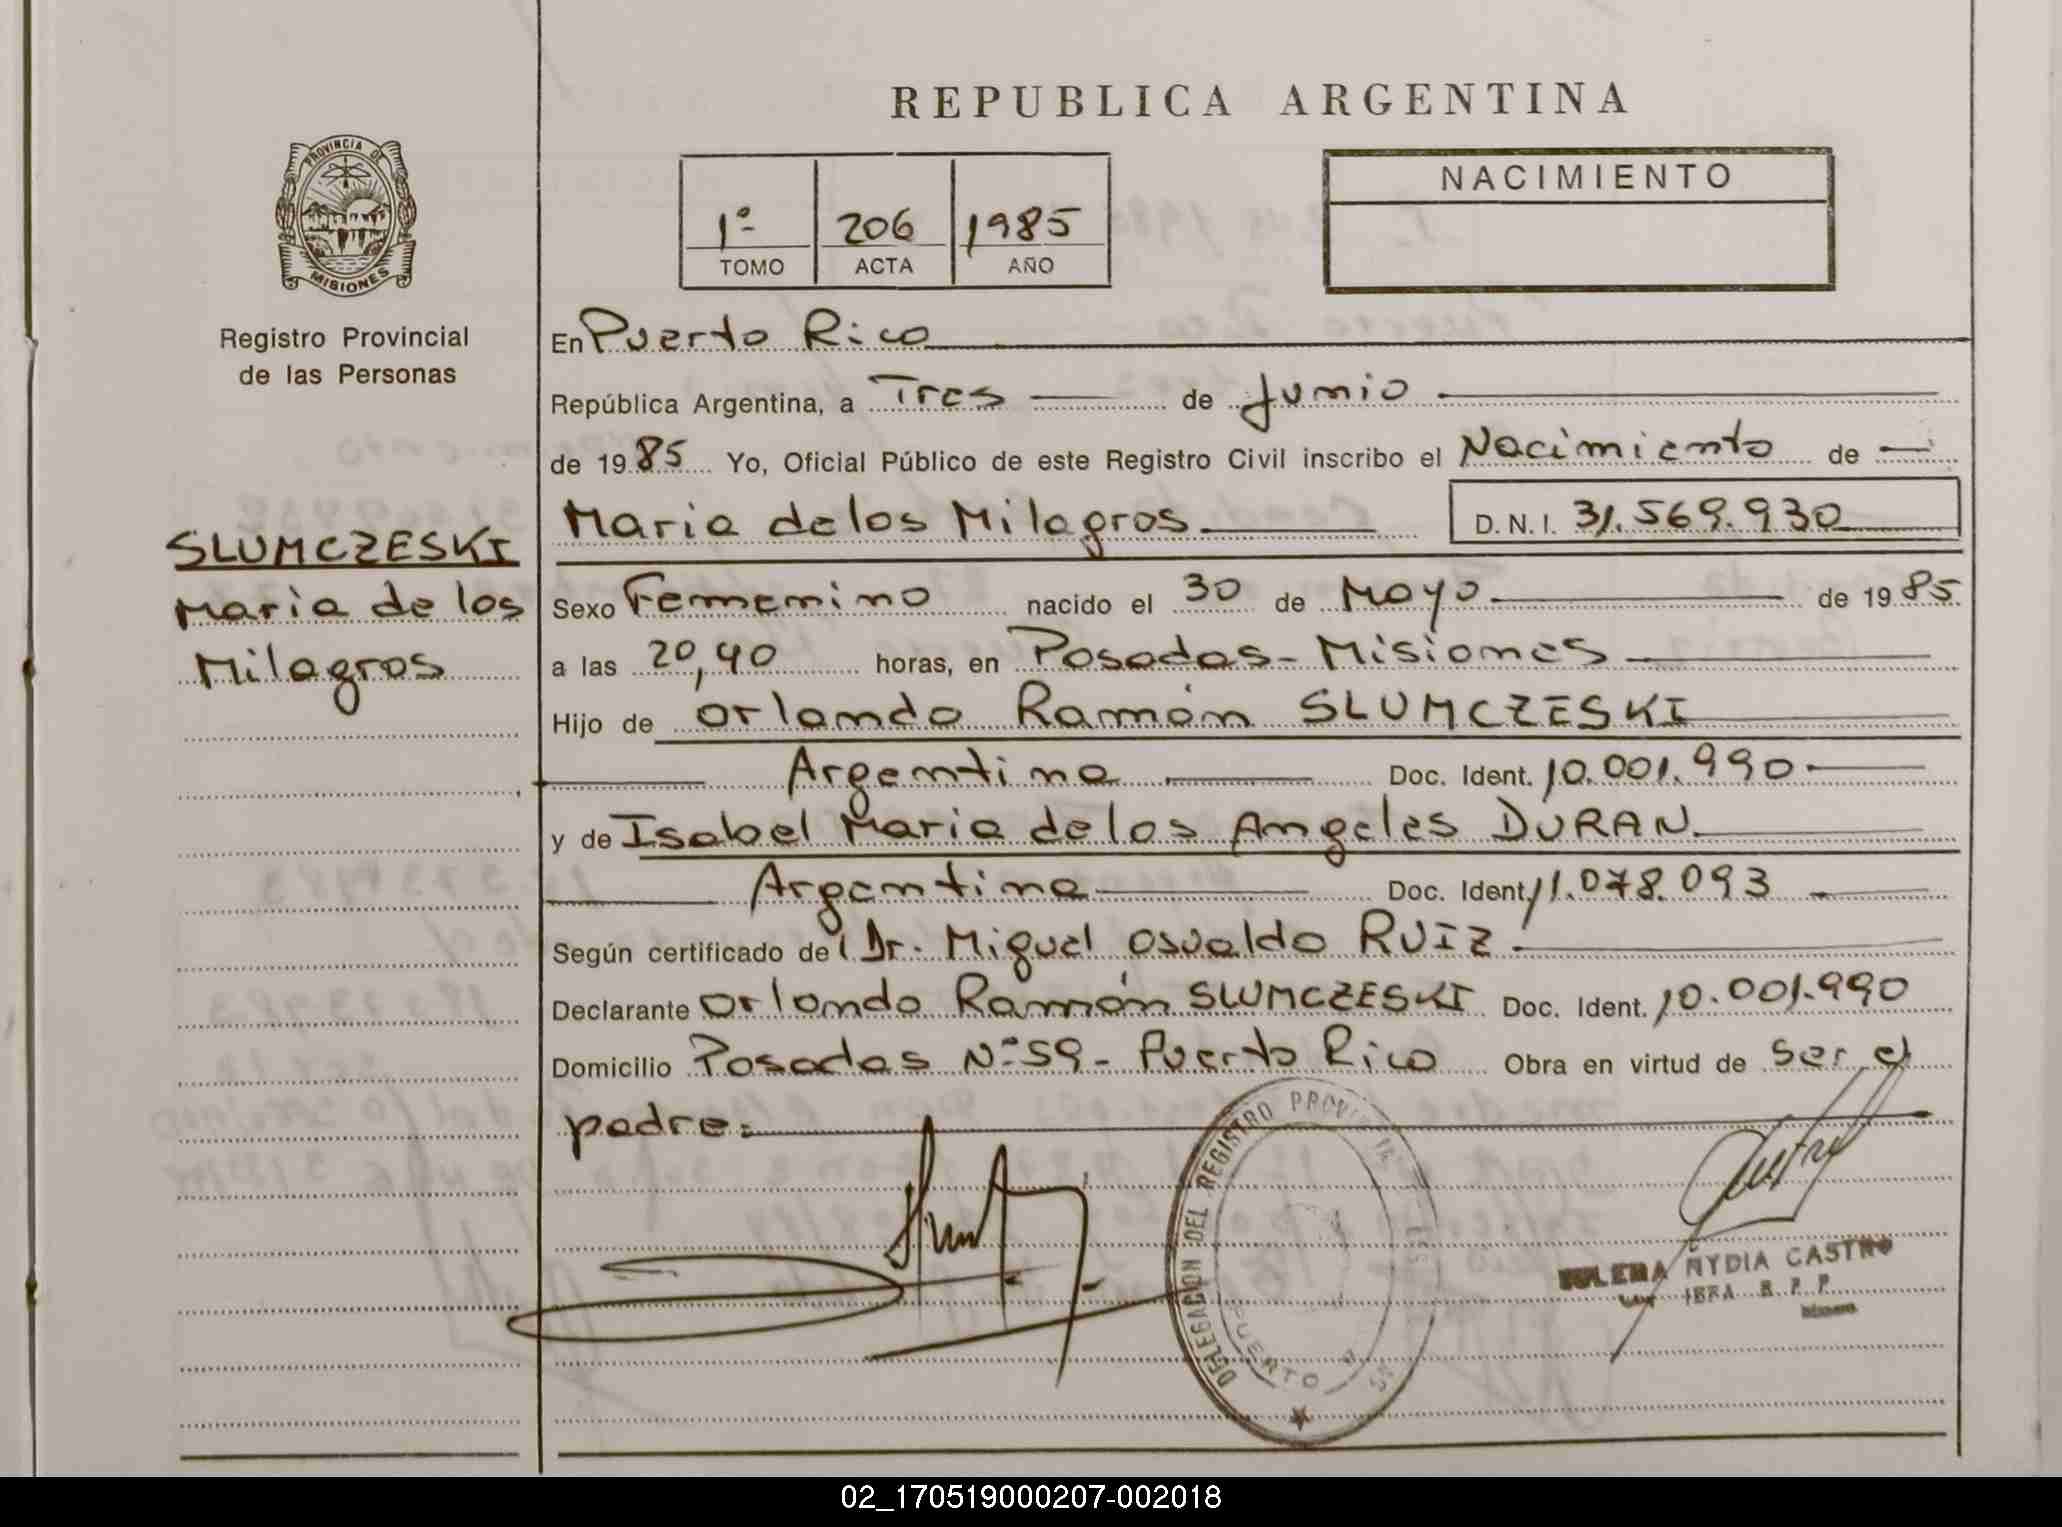 REPUBLICA ARGENTINA
PROVINCIA DE
MISIONES
Registro Provincial
de las Personas
1º 206 1985
TOMO ACTA AÑO
NACIMIENTO
En Puerto Rico
República Argentina, a Tres de Junio
de 1985 Yo, Oficial Público de este Registro Civil inscribo el Nacimiento de
Maria de los Milagros D.N.I. 31.569.930
SLUMCZESKI
Maria de los
Milagros
Sexo Femenino nacido el 30 de Mayo de 1985
a las 20,40 horas, en Posadas - Misiones
Hijo de Orlando Ramón SLUMCZESKI
Argentina Doc. Ident. 10.001.990
y de Isabel Maria de los Angeles DURAN
Argentina Doc. Ident. 11.078.093
Según certificado de Dr. Miguel Osvaldo RUIZ
Declarante Orlando Ramón SLUMCZESKI Doc. Ident. 10.001.990
Domicilio Posadas Nº 59 - Puerto Rico Obra en virtud de ser el
padre.
DELEGACION DEL REGISTRO
PUERTO
NYDIA CASTRO
02_170519000207-002018